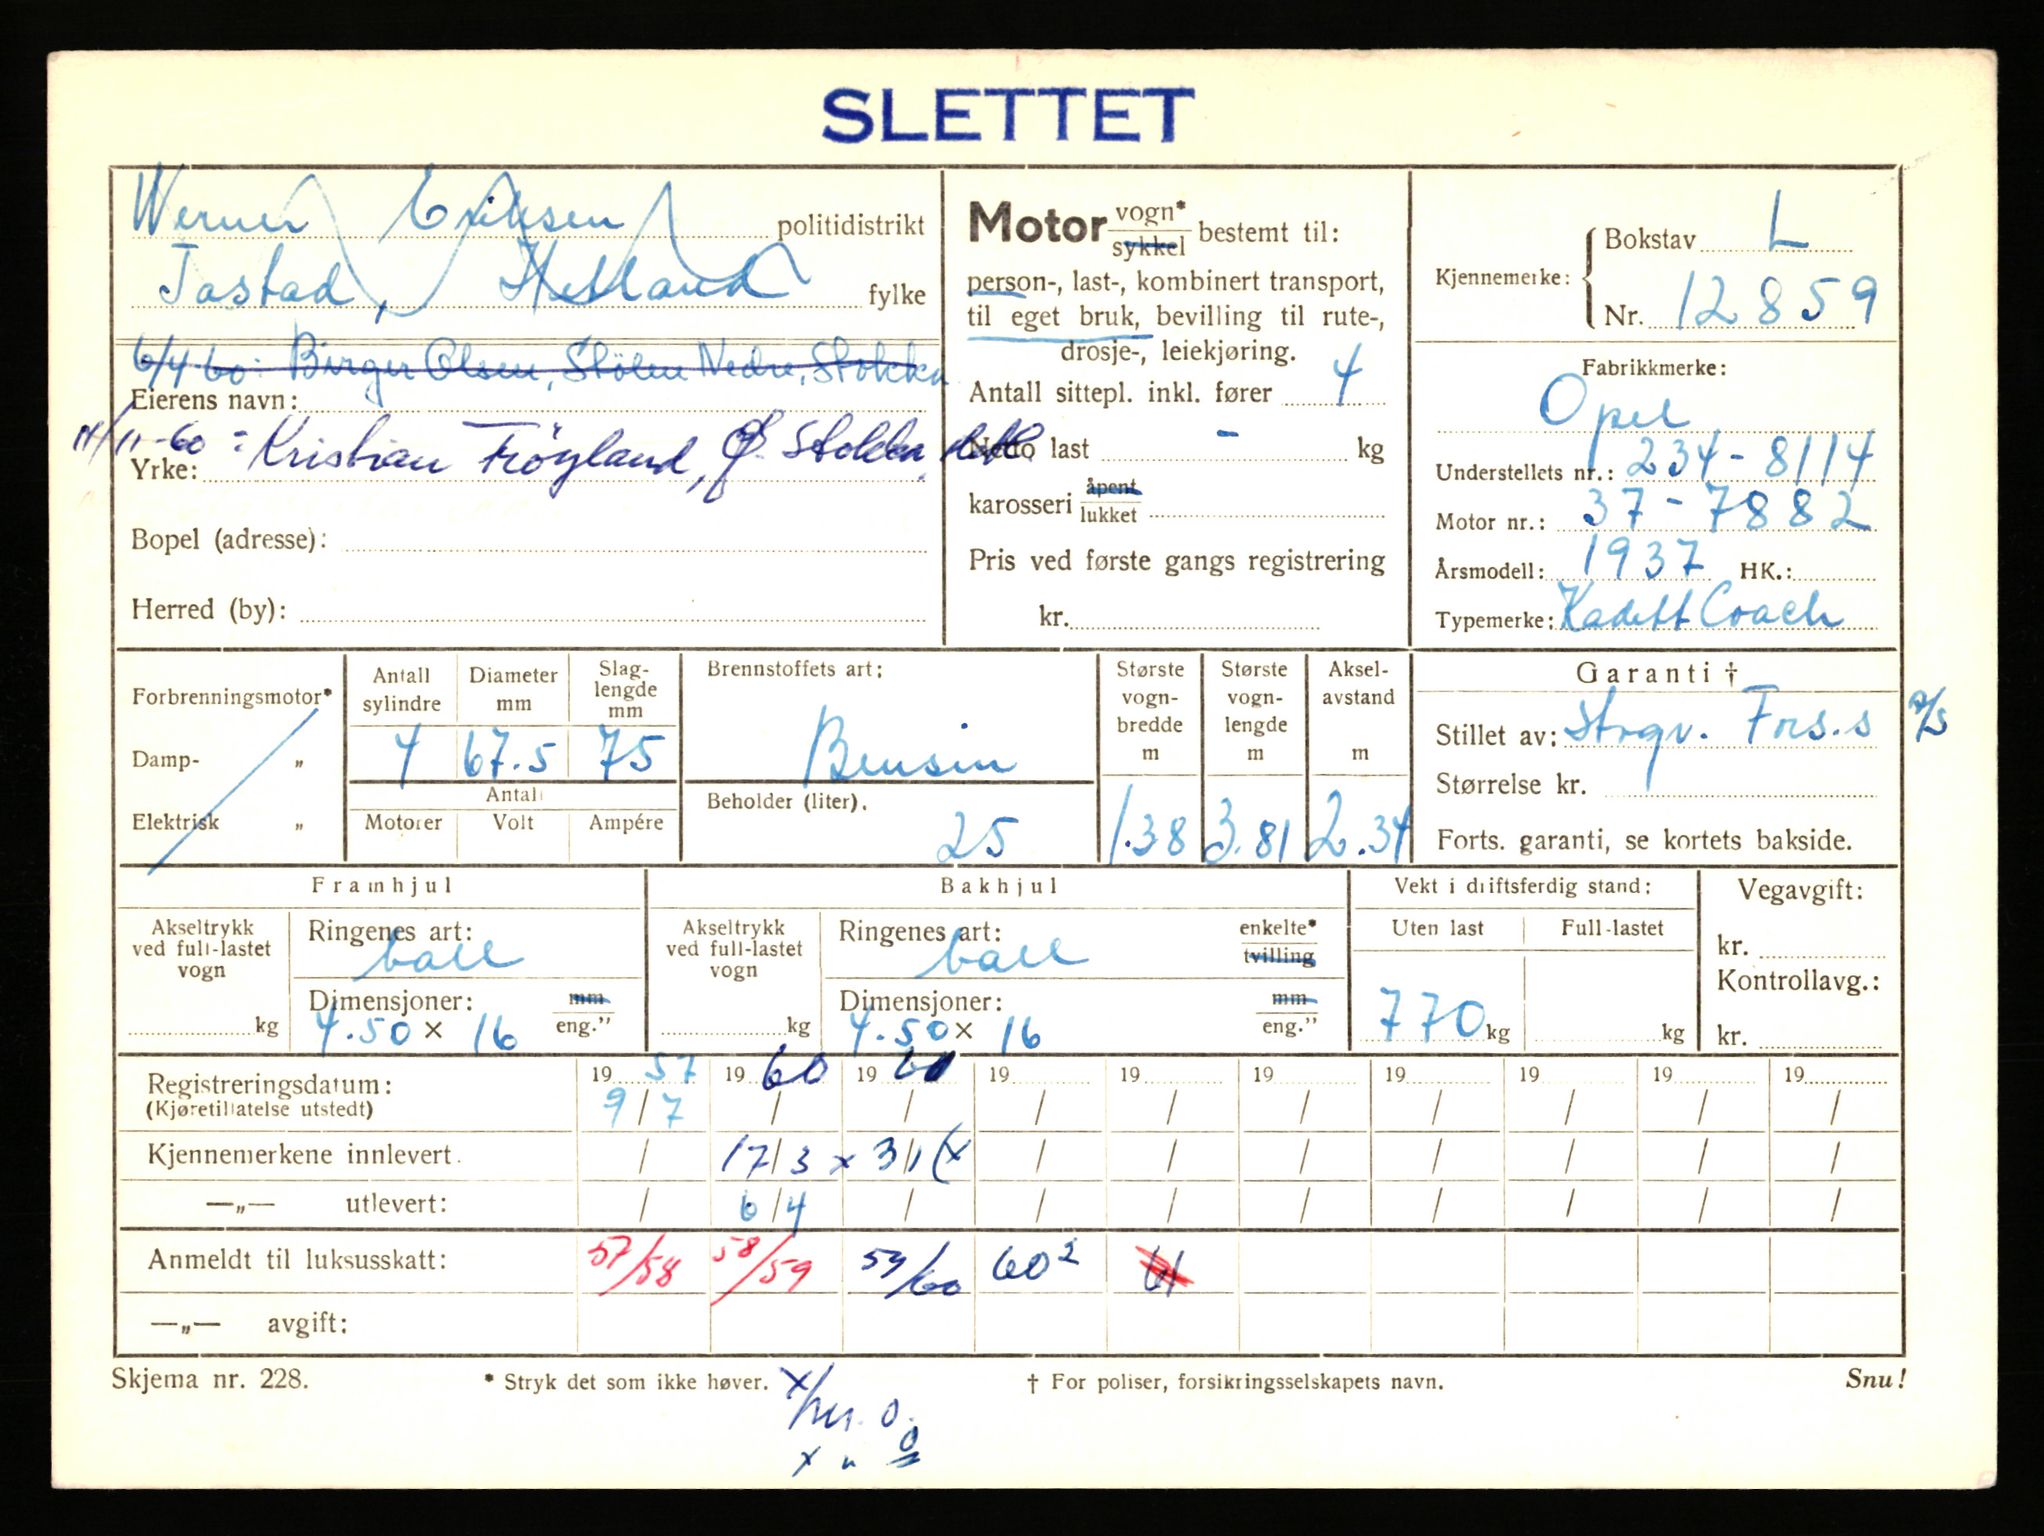 SLETTET
Werner Eriksen politidistrikt
Tastad, Hetland fylke
6/4 60: Birger Olsen, Stölen Nedre, Stokka
Eierens navn:
11/11-60 = Kristian Fröyland, Ø. Stokka,
Yrke:
Bopel (adresse):
Herred (by):
Motor vogn* sykkel bestemt til:
person-, last-, kombinert transport,
til eget bruk, bevilling til rute-,
drosje-, leiekjøring.
Antall sittepl. inkl. fører 4
Netto last - kg
karosseri åpent lukket
Pris ved første gangs registrering
kr.
Kjennemerke: Bokstav L
Nr. 12859
Fabrikkmerke:
Opel
Understellets nr.: 234-8114
Motor nr.: 37-7882
Årsmodell: 1937 HK.:
Typemerke: Kadett Coach
Forbrenningsmotor*
Damp- „
Elektrisk „
Antall sylindre Diameter mm Slag-lengde mm
4 67.5 75
Antall
Motorer Volt Ampére
Brennstoffets art:
Bensin
Beholder (liter).
25
Største vogn-bredde m Største vogn-lengde m Aksel-avstand m
1.38 3.81 2.34
Garanti †
Stillet av: Strgv. Fors.s A/S
Størrelse kr.
Forts. garanti, se kortets bakside.
Framhjul
Akseltrykk ved full-lastet vogn
kg
Ringenes art:
ball
Dimensjoner: mm
4.50 x 16 eng.”
Bakhjul
Akseltrykk ved full-lastet vogn
kg
Ringenes art: enkelte*
ball tvilling
Dimensjoner: mm
4.50 x 16 eng.”
Vekt i driftsferdig stand:
Uten last Full-lastet
770 kg kg
Vegavgift:
kr.
Kontrollavg.:
kr.
Registreringsdatum: 19 57 19 60 19 60 19 19 19 19 19 19 19
(Kjøretillatelse utstedt) 9/7 / / / / / / / / /
Kjennemerkene innlevert. / 17/3 x 3/1 (x / / / / / / /
—„— utlevert: / 6/4 / / / / / / / /
Anmeldt til luksusskatt: 57/58 58/59 59/60 60² 61
—„— avgift:
Skjema nr. 228. * Stryk det som ikke høver. † For poliser, forsikringsselskapets navn. Snu!
x/ner. o.
x „ o